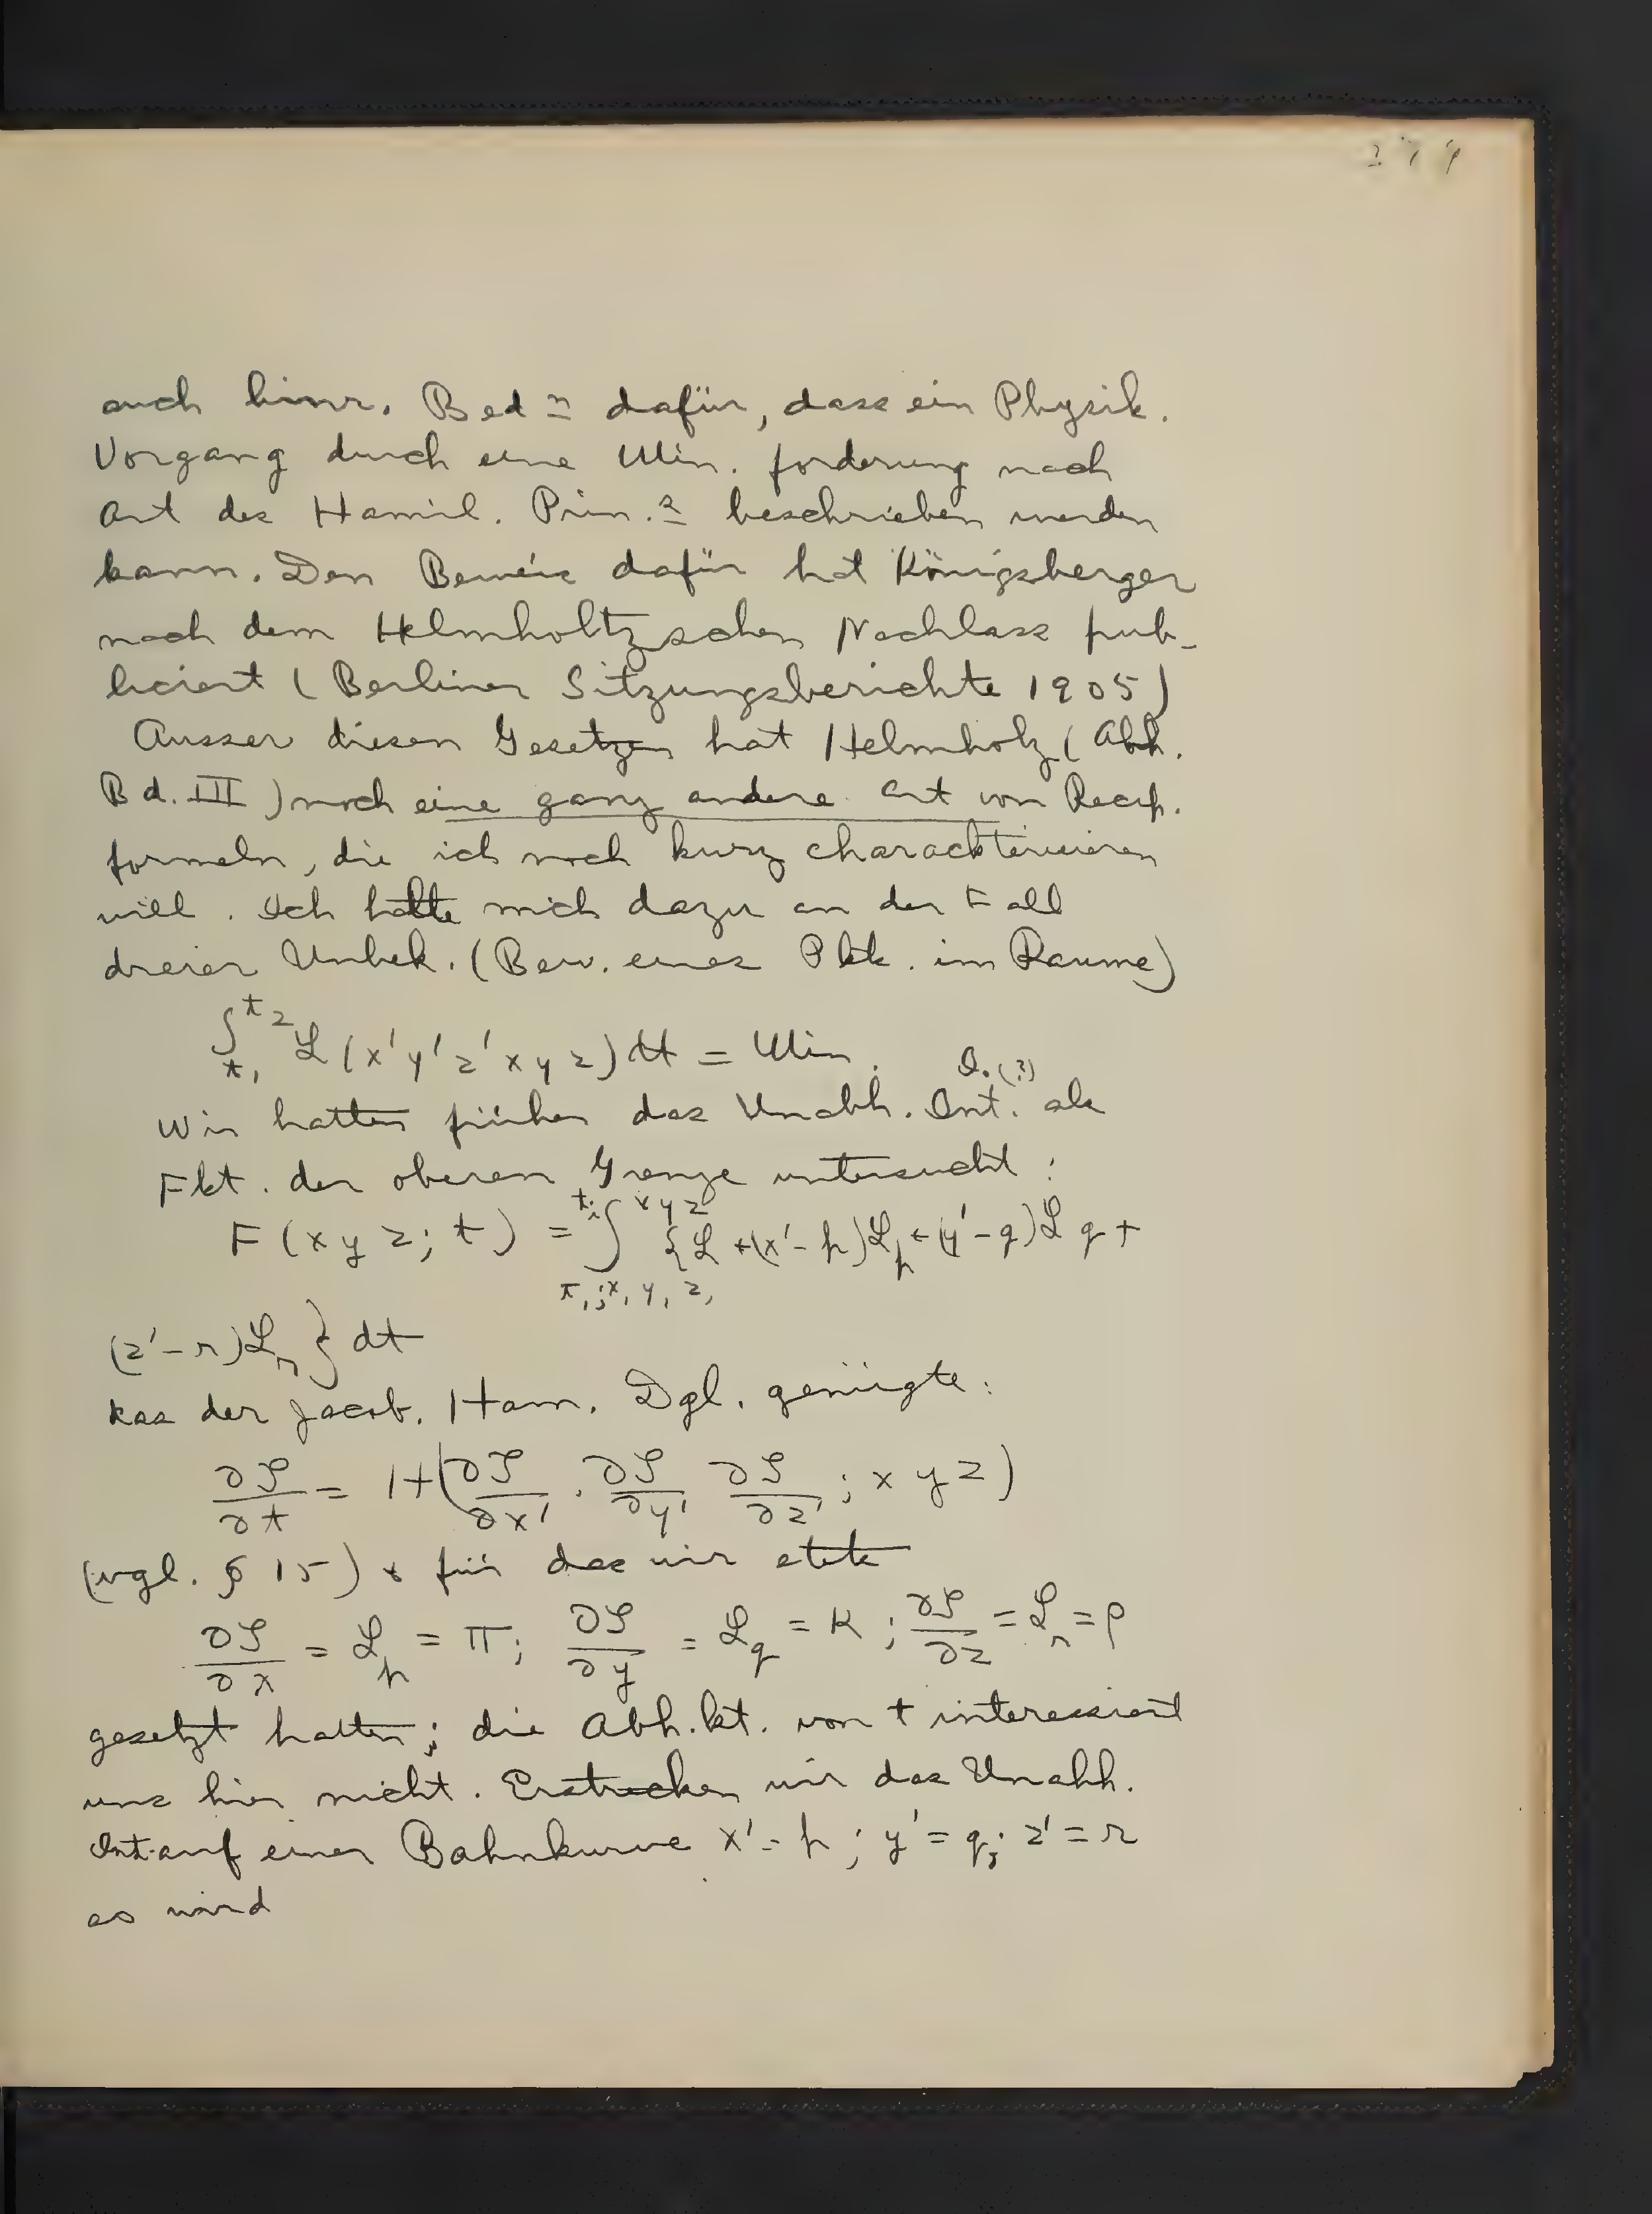 279
auch hinr. Bed<u>n</u> dafür, dass ein Physik.
Vorgang durch eine Min. forderung nach
Art des Hamil. Prin.<u>s</u> beschrieben werden
kann. Den Beweis dafür hat Königsberger
nach dem Helmholtzschen Nachlass pub-
liciert (Berliner Sitzungsberichte 1905)
Ausser diesen Gesetzen hat Helmholz (Abh.
Bd. III) noch eine ganz andere Art von Recip.
formeln, die ich noch kurz charackterisieren
will. Ich halte mich dazu an den Fall
dreier Unbek. (Bew. eines Pkts. im Raume)
∫_{t₁}^{t₂} ℒ(x'y'z'xyz)dt = Min.
J.(?)
Wir hatten früher das Unabh. Int. als
Fkt. der oberen Grenze untersucht:
F(xyz; t) = ∫_{t₁; x₁ y₁ z₁}^{t; xyz} {ℒ+(x'-p)ℒ_p+(y'-q)ℒ_q+
(z'-r)ℒ_r}dt
das der Jacob. Ham. Dgl. genügte:
∂J/∂t = H(∂J/∂x', ∂J/∂y' ∂J/∂z'; xyz)
(vgl. § 15) & für das wir stets
∂J/∂x = ℒ_p = π; ∂J/∂y = ℒ_q = κ; ∂J/∂z = ℒ_r = ρ
gesetzt hatten; die Abh.kt. von t interessiert
uns hier nicht. Erstrecken wir das Unabh.
Int. auf einer Bahnkurve x' = p; y' = q; z' = r
so wird